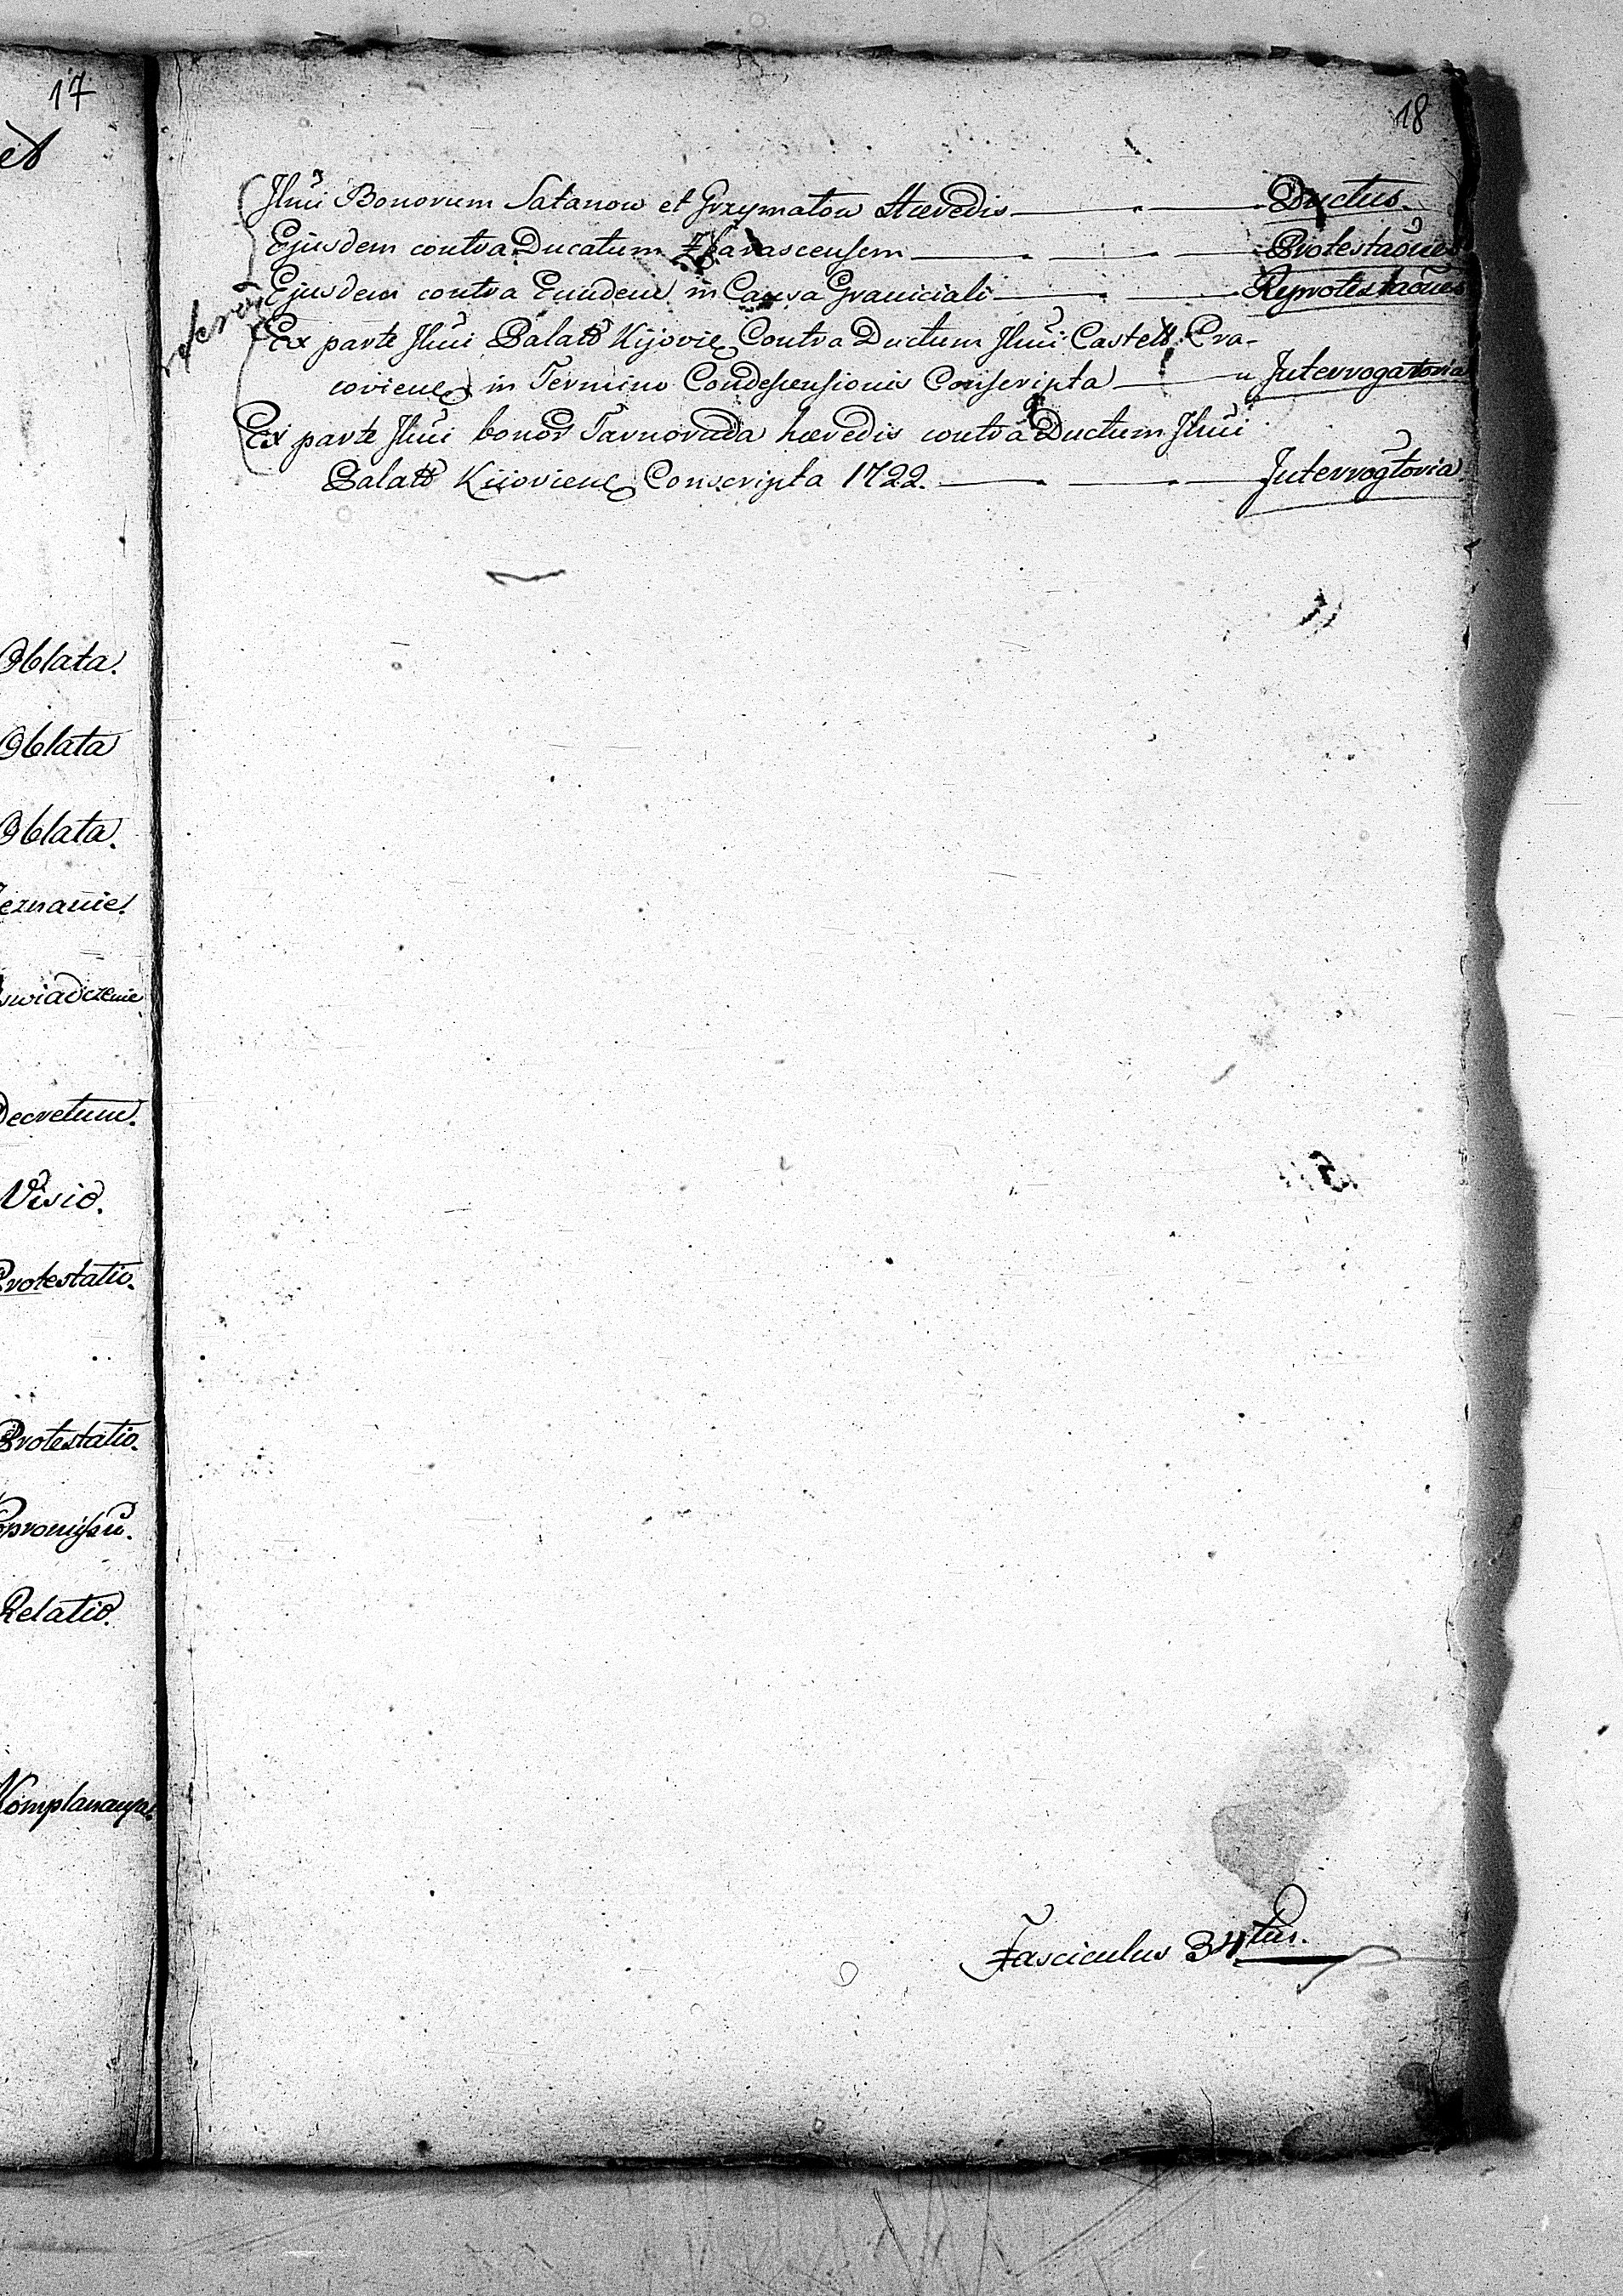 17
et
Oblata.
Oblata
Oblata.
Decretum.
Visio.
Protestatio.
Protestatio.
Relatio.
18
Jllmi Bonorum Satanow et Grzymałow Hæredis — Ductus.
Ejusdem contra Ducatum Zbarascensem — Protestaões
Ejusdem contra Eundem in Causa Graniciali — Reprotestaões
Ex parte Jllmi Palatt Kijovien Contra Ductum Jllmi Castell Cra-
covien in Termino Condescensionis Conscripta — Interrogatoria
Ex parte Jllmi bonor Tarnoruda hæredis contra Ductum Jllmi
Palatt Kijovien Conscripta 1722. — Interrogtoria.
Fasciculus 34tus.